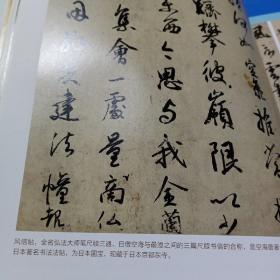 何如空海推常
躋攀彼嶺限以少
東西今思与我金蘭
集會一處量商仏
因縁共建法幢報
风信帖，全名弘法大师笔尺牍三通，日僧空海与最澄之间的三篇尺牍书信的合称，是空海
日本著名书法法帖，为日本国宝，现藏于日本京都东寺。